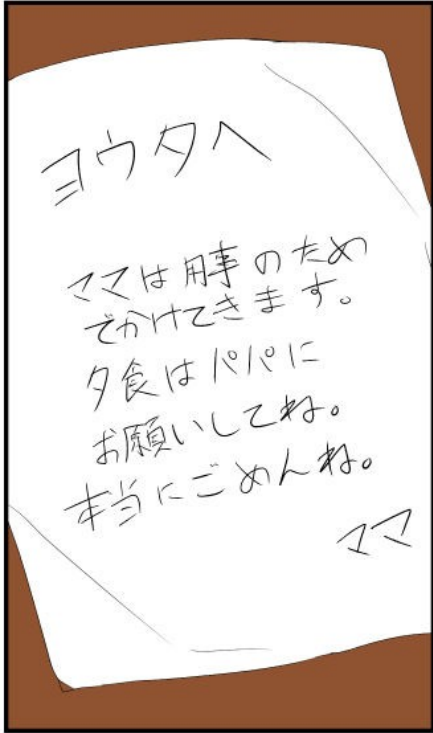 ヨウタへ
ママは用事のため
でかけてきます。
夕食はパパに
お願いしてね。
本当にごめんね。
ママ